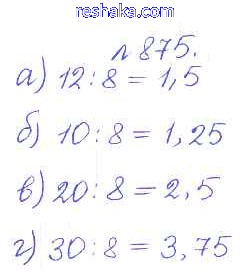 reshaka.com
№875.
а) 12:8 = 1,5
б) 10:8 = 1,25
в) 20:8 = 2,5
г) 30:8 = 3,75